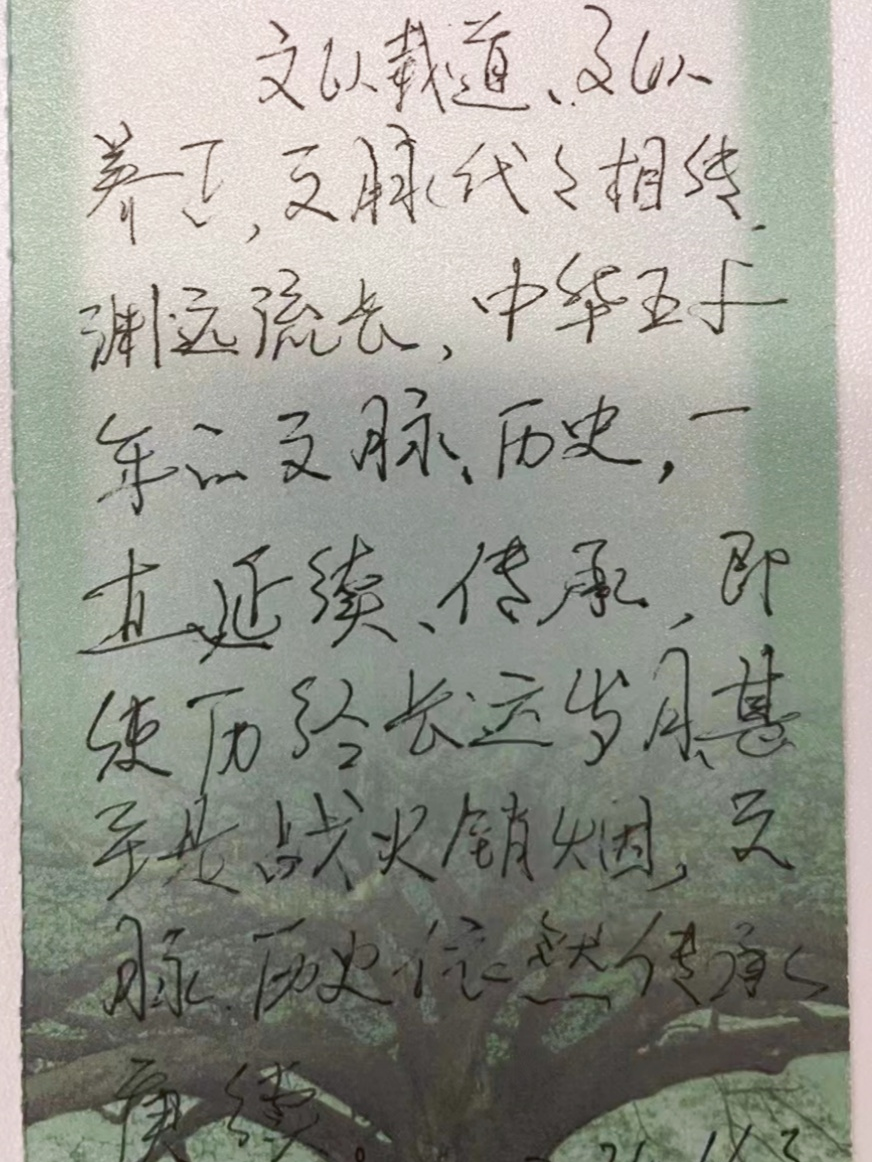 文以载道、文以
养正,文脉代々相传、
渊远流长,中华五千
年的文脉、历史,一
直延续、传承,即
使历经长远岁月、甚
至是战火销烟,文
脉、历史依然传承
赓续。